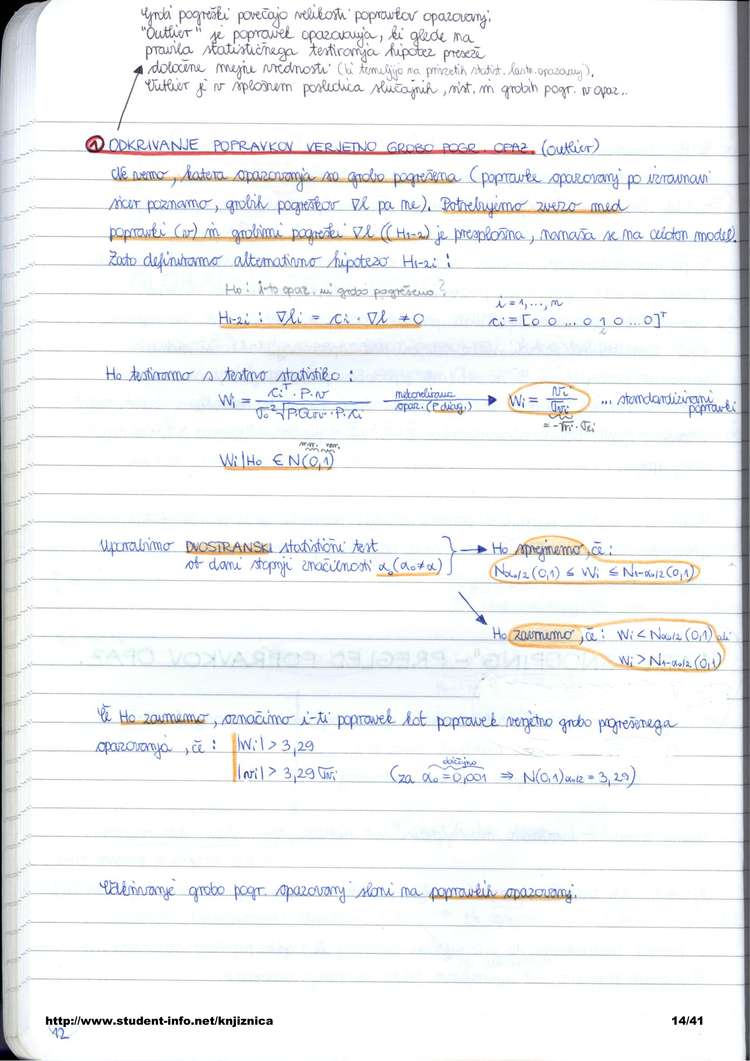 Grobi pogreški povečajo velikosti popravkov opazovanj.
"Outlier" je popravek opazovanja, ki glede na
pravila statističnega testiranja hipotez preseže
določene mejne vrednosti (ki temeljijo na privzetih statist. lastn. opazovanj).
Outlier je v splošnem posledica slučajnih, sist. in grobih pogr. v opaz..
1 ODKRIVANJE POPRAVKOV VERJETNO GROBO POGR. OPAZ. (outlier)
Ne vemo, katera opazovanja so grobo pogrešena (popravke opazovanj po izravnavi
sicer poznamo, grobih pogreškov ∇l pa ne). Potrebujemo zvezo med
popravki (v) in grobimi pogreški ∇l ((H1-2) je presplošna, nanaša se na celoten model).
Zato definiramo alternativno hipotezo H1-2i :
H0: i-to opaz. ni grobo pogrešeno?
i = 1, ..., n
H1-2i : ∇li = ci · ∇l ≠ 0
ci = [0 0 ... 0 1 0 ... 0]ᵀ
i
H0 testiramo s testno statistiko :
Wi = ciᵀ · P · v / σ0² √P·Qvv·P·ci
nekorelirana opaz. (P diag.)
Wi = vi / σvi
... standardizirani popravki
= √ri · σli
Wi|H0 ∈ N(0,1)
Uporabimo DVOSTRANSKI statistični test
ob dani stopnji značilnosti α0 (α0 ≠ α)
H0 sprejmemo, če :
Nα0/2 (0,1) ≤ Wi ≤ N1-α0/2 (0,1)
H0 zavrnemo, če : Wi < Nα0/2 (0,1) ali
Wi > N1-α0/2 (0,1)
Če H0 zavrnemo, označimo i-ti popravek kot popravek verjetno grobo pogrešenega
opazovanja, če : |Wi| > 3,29
|vi| > 3,29 σvi
običajno
(za α0 = 0,001 ⇒ N(0,1)α0/2 = 3,29)
Odkrivanje grobo pogr. opazovanj sloni na popravkih opazovanj.
http://www.student-info.net/knjiznica
14/41
12